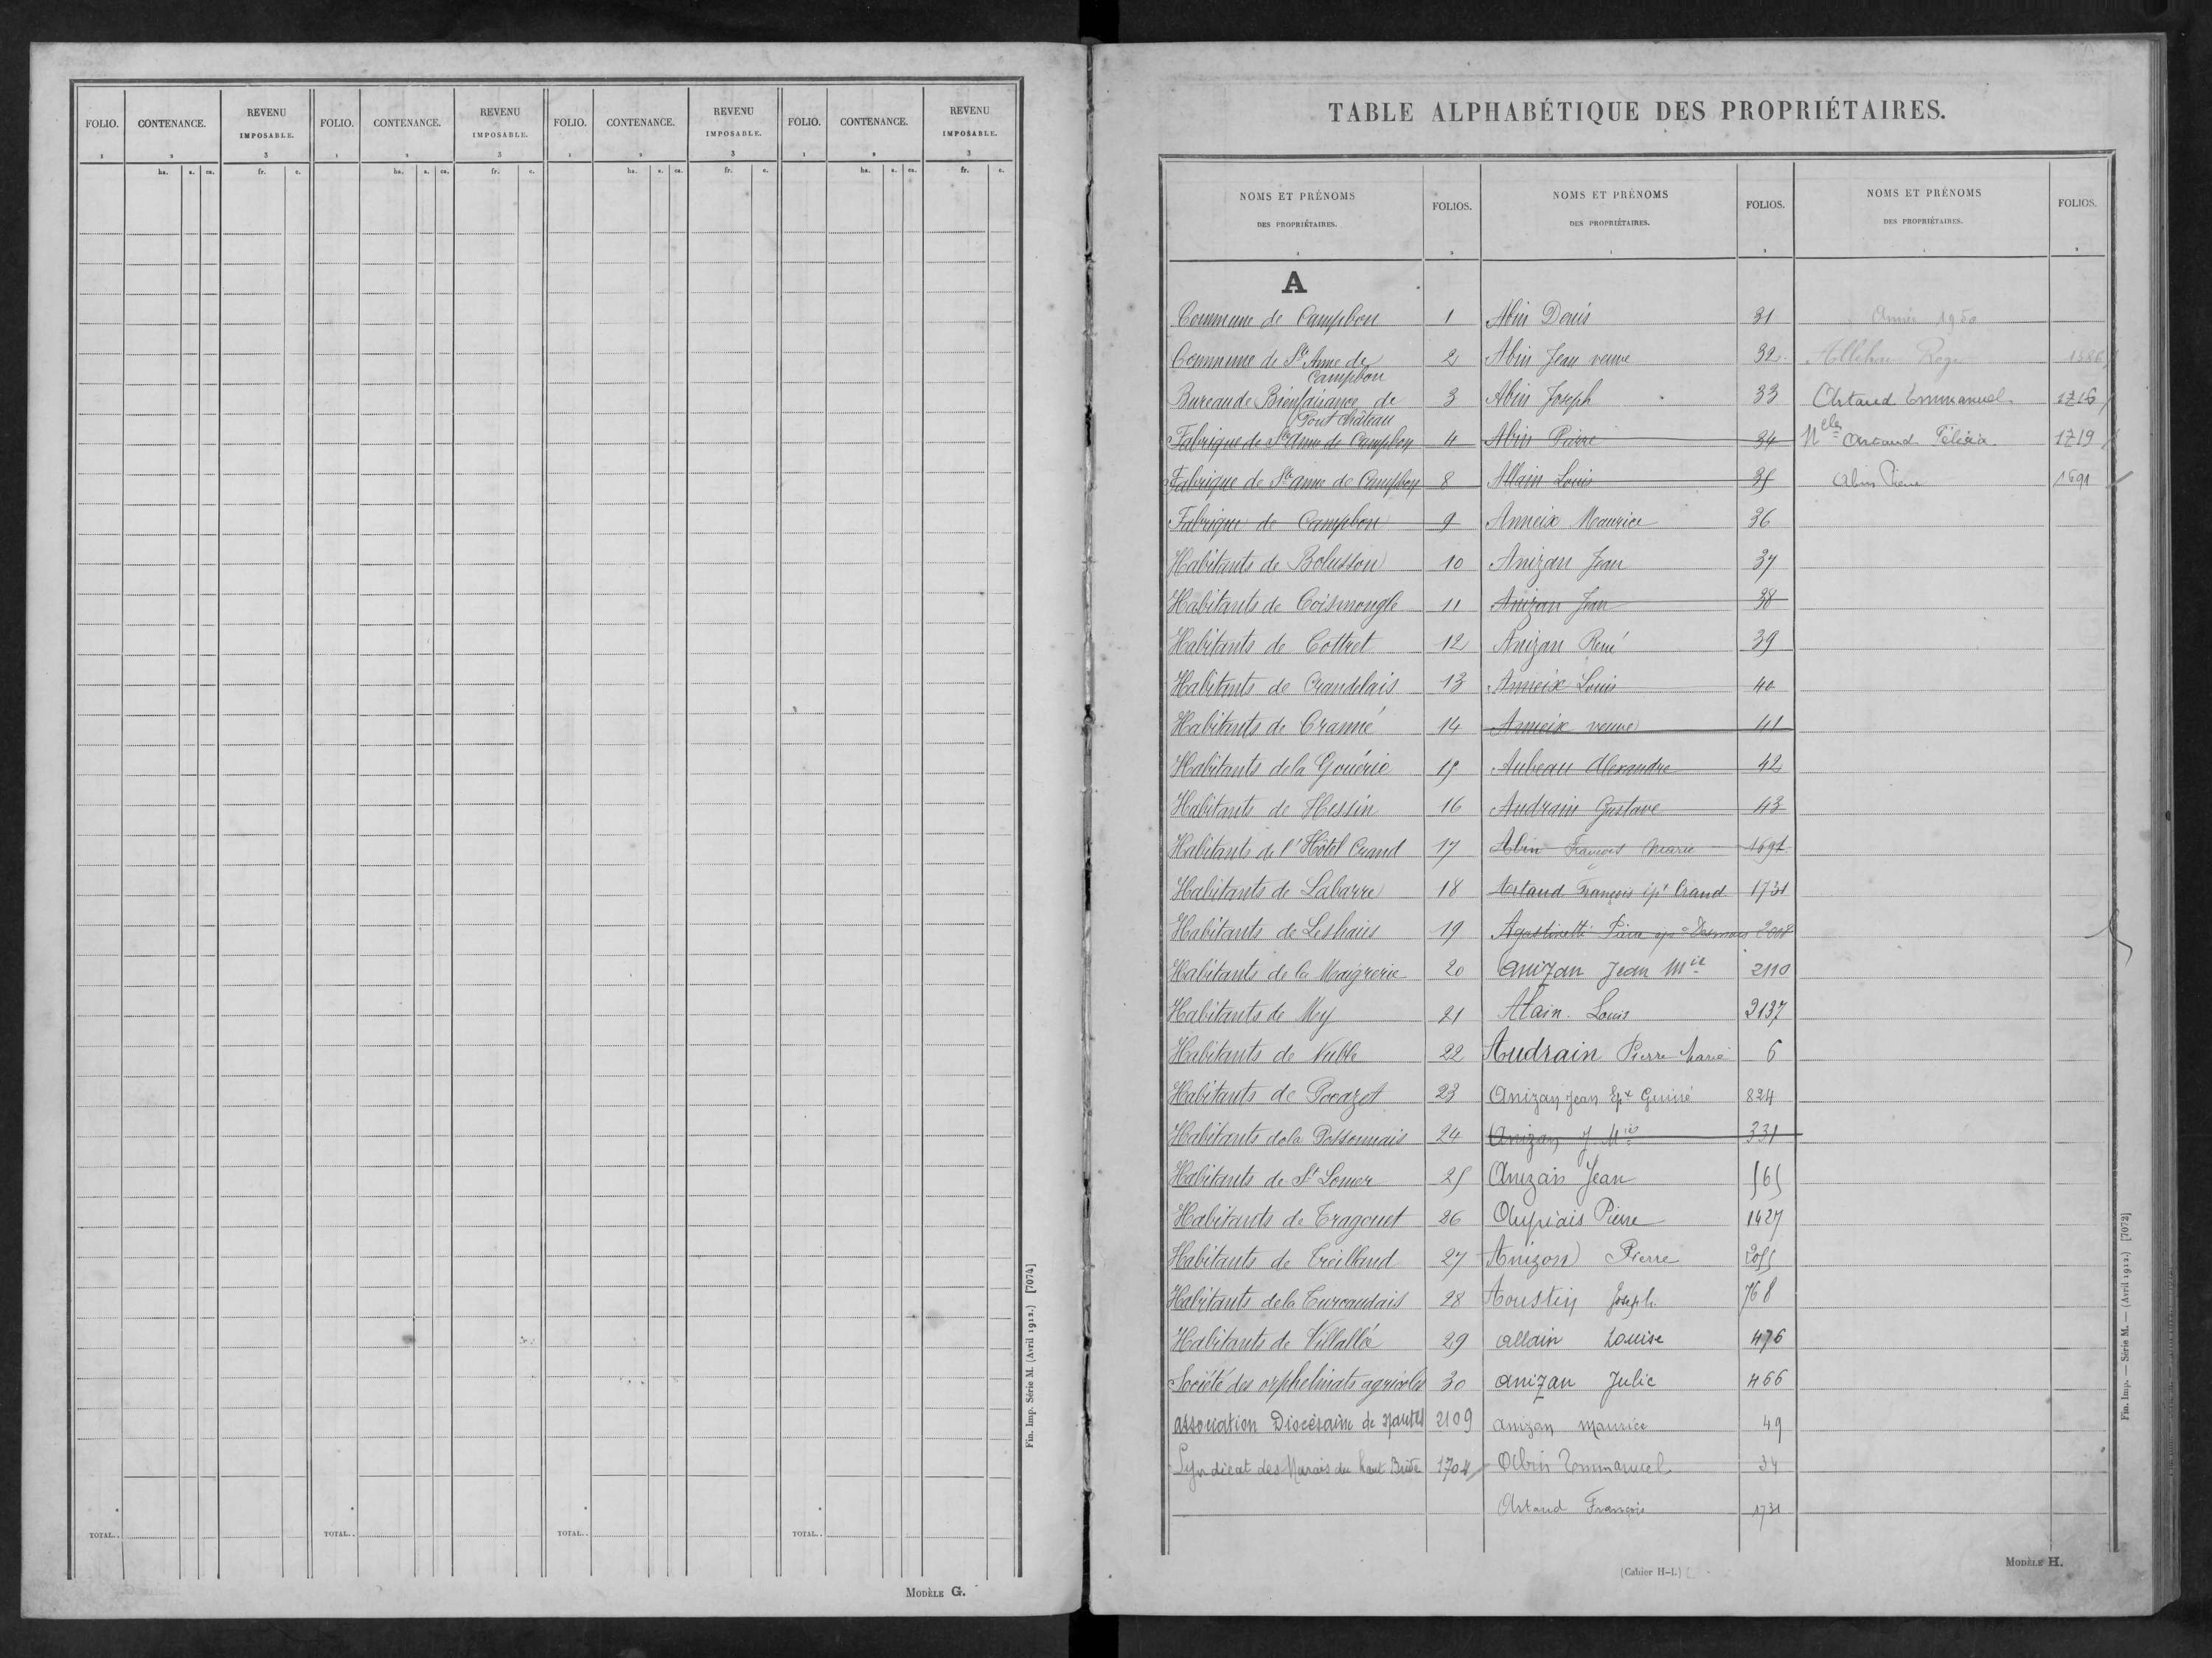 FOLIO. CONTENANCE. REVENU IMPOSABLE. FOLIO. CONTENANCE. REVENU IMPOSABLE. FOLIO. CONTENANCE. REVENU IMPOSABLE. FOLIO. CONTENANCE. REVENU IMPOSABLE.
1 2 3 1 2 3 1 2 3 1 2 3
ha. a. ca. fr. c. ha. a. ca. fr. c. ha. a. ca. fr. c. ha. a. ca. fr. c.
TOTAL.. TOTAL.. TOTAL.. TOTAL..
MODÈLE G.
Fin. Imp. Série M. (Avril 1912.) [7074]
TABLE ALPHABÉTIQUE DES PROPRIÉTAIRES.
NOMS ET PRÉNOMS
DES PROPRIÉTAIRES.
FOLIOS.
A
Commune de Campbon 1
Commune de Ste Anne de Campbon 2
Bureau de Bienfaisance de Pont Château 3
Fabrique de Ste Anne de Campbon 4
Fabrique de Ste anne de Campbon 8
Fabrique de Campbon 9
Habitants de Bolusson 10
Habitants de Coismongle 11
Habitants de Cottret 12
Habitants de Crandelais 13
Habitants de Cranné 14
Habitants de la Gouérie 15
Habitants de Hessin 16
Habitants de l'Hôtel Crand 17
Habitants de Labarre 18
Habitants de Leshais 19
Habitants de la Maigrerie 20
Habitants de My 21
Habitants de Nuble 22
Habitants de Povazet 23
Habitants de la Possonnais 24
Habitants de St Lomer 25
Habitants de Tragouet 26
Habitants de Treilland 27
Habitants de la Turcaudais 28
Habitants de Villallée 29
Société des orphelinats agricoles 30
association Diocésaine de Nantes 2109
Syndicat des Marais du haut Brivé 1704
NOMS ET PRÉNOMS
DES PROPRIÉTAIRES.
FOLIOS.
Abin Denis 31
Abin Jean veuve 32
Abin Joseph 33
Abin Pierre 34
Allain Louis 35
Anneix Maurice 36
Anizan Jean 37
Anizan Jean 38
Anizan René 39
Anneix Louis 40
Anneix veuve 41
Aubeau Alexandre 42
Audrain Gustave 43
Abin François Marie 1691
Artaud François épx Crand 1731
Agostinetti épx Desmars 2008
Anizan Jean Mie 2110
Alain Louis 2137
Audrain Pierre Marie 6
Anizan Jean Epx Guirié 824
Anizan J Mie 331
Anizan Jean 565
Aupiais Pierre 1427
Anizon Pierre 2055
Aoustin Joseph 768
allain Louise 476
anizan Julie 466
anizan Maurice 49
Abin Emmanuel 34
Artaud François 1731
NOMS ET PRÉNOMS
DES PROPRIÉTAIRES.
FOLIOS.
Année 1950
Artaud Emmanuel 1716
Artaud Félicia 1719
Abin Pierre 1691
(Cahier H-I.)
MODÈLE H.
Fin. Imp. — Série M. — (Avril 1912.) [7073]